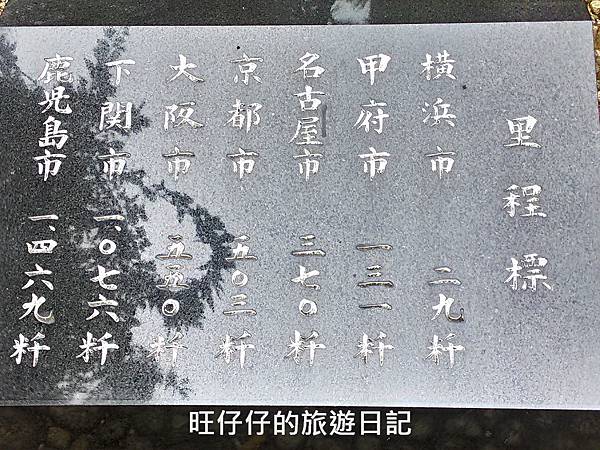 里程標
横浜市 二九粁
甲府市 一三一粁
名古屋市 三七〇粁
京都市 五〇三粁
大阪市 五五〇粁
下関市 一、〇七六粁
鹿児島市 一、四六九粁
旺仔仔的旅遊日記